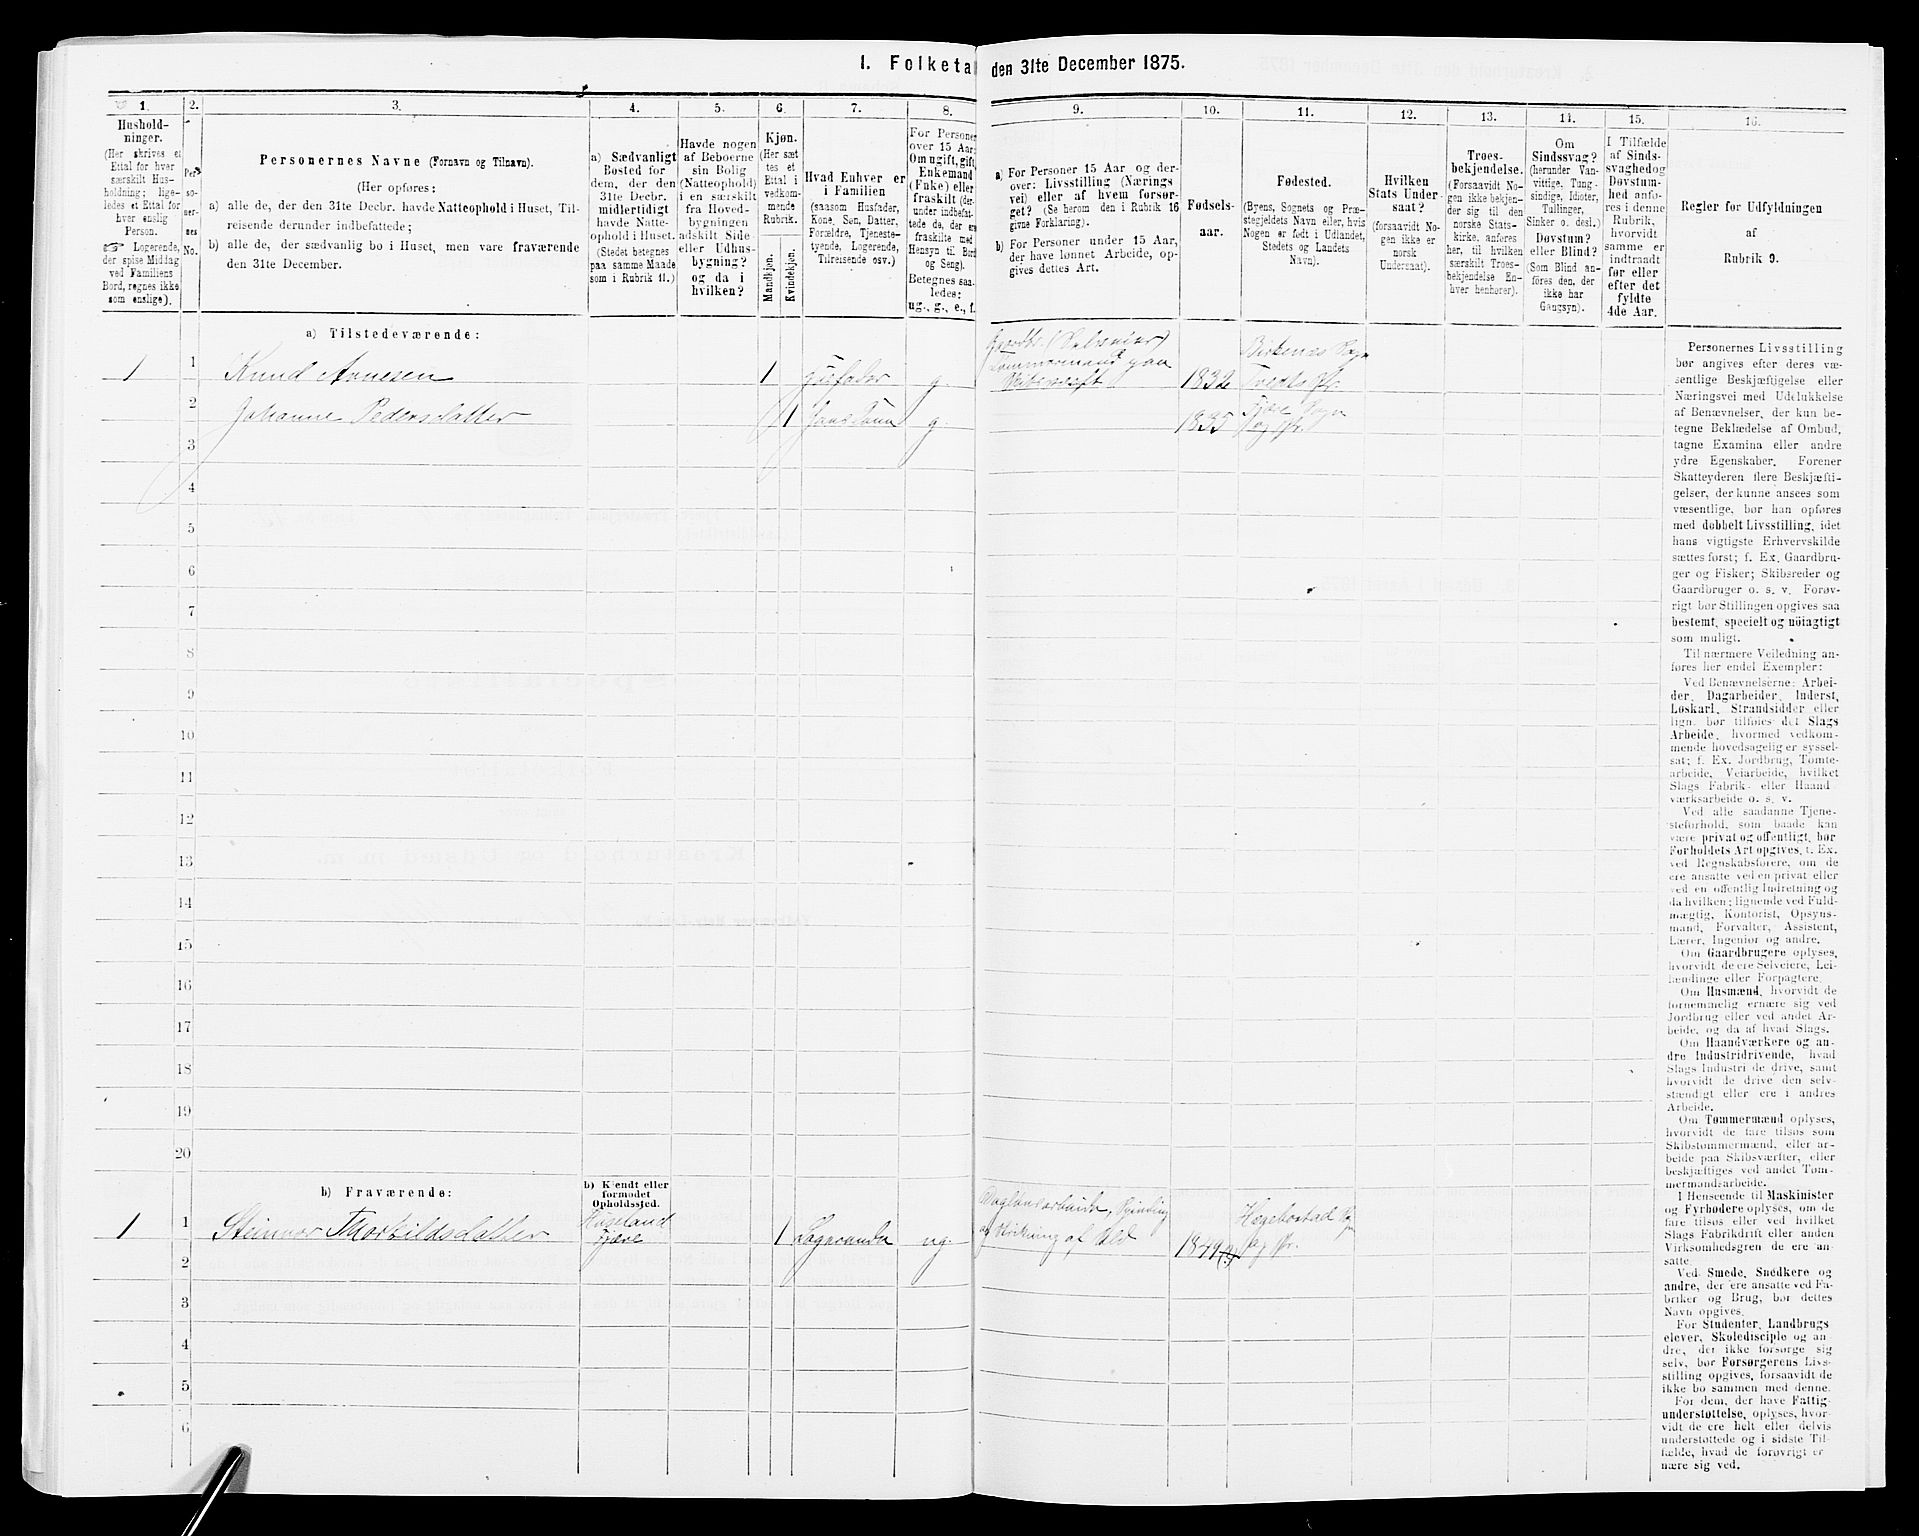 I. Folketa
den 31te December 1875.
1.
2.
3.
4.
5.
6.
7.
8.
9.
10.
11.
12.
13.
14.
15.
16.
Hushold-
ninger.
(Her skrives et
Ettal for hver
særskilt Hus-
holdning; lige-
ledes et Ettal for
hver enslig
Person.
☞ Logerende,
der spise Middag
ved Familiens
Bord, regnes ikke
som enslige).
Per-
so-
ner-
nes
No.
Personernes Navne (Fornavn og Tilnavn).
(Her opføres:
a) alle de, der den 31te Decbr. havde Natteophold i Huset, Til-
reisende derunder indbefattede;
b) alle de, der sædvanlig bo i Huset, men vare fraværende
den 31te December.
a) Sædvanligt
Bosted for
dem, der den
31te Decbr.
midlertidigt
havde Natte-
ophold i Huset.
(Stedet betegnes
paa samme Maade
som i Rubrik 11.)
Havde nogen
af Beboerne
sin Bolig
(Natteophold)
i en særskilt
fra Hoved-
bygningen
adskilt Side-
eller Udhus-
bygning?
og da i
hvilken?
Kjøn.
(Her sæt-
tes et
Ettal i
vedkom-
mende
Rubrik.
Mandkjøn.
Kvindekjøn.
Hvad Enhver er
i Familien
(saasom Husfader,
Kone, Søn, Datter,
Forældre, Tjeneste-
tyende, Logerende,
Tilreisende osv.)
For Personer
over 15 Aar:
Om ugift, gift,
Enkemand
(Enke) eller
fraskilt (der-
under indbefat-
tede de, der ere
fraskilte med
Hensyn til Bord
og Seng).
Betegnes saa-
ledes:
ug., g., e., f.
a) For Personer 15 Aar og der-
over: Livsstilling (Nærings-
vei) eller af hvem forsør-
get? (Se herom den i Rubrik 16
givne Forklaring).
b) For Personer under 15 Aar,
der have lønnet Arbeide, op-
gives dettes Art.
Fødsels-
aar.
Fødested.
(Byens, Sognets og Præ-
stegjeldets Navn eller, hvis
Nogen er født i Udlandet,
Stedets og Landets
Navn).
Hvilken
Stats Under-
saat?
(forsaavidt No-
gen ikke er
norsk
Undersaat).
Troes-
bekjendelse.
(Forsaavidt No-
gen ikke bekjen-
der sig til den
norske Stats-
kirke, anføres
her, til hvilken
særskilt Troes-
bekjendelse En-
hver henhører).
Om
Sindssvag?
(herunder Van-
vittige, Tung-
sindige, Idioter,
Tullinger,
Sinker o. desl.)
Døvstum?
eller Blind?
(Som Blind an-
føres den, der
ikke har
Gangsyn).
I Tilfælde
af Sinds-
svaghed og
Døvstum-
hed anfø-
res i denne
Rubrik,
hvorvidt
samme er
indtraadt
før eller
efter det
fyldte
4de Aar.
Regler for Udfyldningen
af
Rubrik 9.
a) Tilstedeværende:
1 1 Knud Aanesen 1 Husfader g. Gaardbr. (Selveier) Tømmermand paa Skibsværft 1832 Birkenæs Sogn Tvedts Pr.
2 Johanne Pedersdatter 1 Hans Kone g. 1835 Fjære Sogn og Pr.
3
4
5
6
7
8
9
10
11
12
13
14
15
16
17
18
19
20
b) Fraværende:
b) Kjendt eller
formodet
Opholdssted.
1 1 Steinvor Thorkildsdatter Huseland Fjære 1 Logerende ug. Daglønsarbeide, Spinding og Strikning af Uld 1849 (?) Hægebostad Sogn og Pr.
2
3
4
5
6
Personernes Livsstilling
bør angives efter deres væ-
sentlige Beskjæftigelse eller
Næringsvei med Udelukkelse
af Benævnelser, der kun be-
tegne Beklædelse af Ombud,
tagne Examina eller andre
ydre Egenskaber. Forener
Skatteyderen flere Beskjæfti-
gelser, der kunne ansees som
væsentlige, bør han opføres
med dobbelt Livsstilling, idet
hans vigtigste Erhvervskilde
sættes først; f. Ex. Gaardbru-
ger og Fisker; Skibsreder og
Gaardbruger o. s. v. Forøv-
rigt bør Stillingen opgives saa
bestemt, specielt og nöiagtigt
som muligt.
Til nærmere Veiledning an-
føres her endel Exempler:
Ved Benævnelserne: Arbei-
der, Dagarbeider, Inderst,
Løskarl, Strandsidder eller
lign. bør tilføies det Slags
Arbeide, hvormed vedkom-
mende hovedsagelig er syssel-
sat; f. Ex. Jordbrug, Tomte-
arbeide, Veiarbeide, hvilket
Slags Fabrik- eller Haand-
værksarbeide o. s. v.
Ved alle saadanne Tjene-
steforhold, som baade kan
være privat og offentligt, bør
Forholdets Art opgives, f. Ex.
ved Regnskabsførere, om de
ere ansatte ved en privat eller
ved en offentlig Indretning og
da hvilken; lignende ved Fuld-
mægtig, Kontorist, Opsyns-
mand, Forvalter, Assistent,
Lærer, Ingeniør og andre.
Om Gaardbrugere oplyses,
hvorvidt de ere Selveiere, Lei-
lændinge eller Forpagtere.
Om Husmænd, hvorvidt de
fornemmelig ernære sig ved
Jordbrug eller ved andet Ar-
beide, og da af hvad Slags.
Om Haandværkere og an-
dre Industridrivende, hvad
Slags Industri de drive, samt
hvorvidt de drive den selv-
stændigt eller ere i andres
Arbeide.
Om Tømmermænd oplyses,
hvorvidt de fare tilsøs som
Skibstømmermænd, eller ar-
beide paa Skibsværfter, eller
beskjæftiges ved andet Tøm-
mermandsarbeide.
I Henseende til Maskinister
og Fyrbødere oplyses, om de
fare tilsøs eller ved hvilket
Slags Fabrikdrift eller anden
Virksomhedsgren de ere an-
satte.
Ved Smede, Snedkere og
andre, der ere ansatte ved Fa-
briker og Brug, bør dettes
Navn opgives.
For Studenter, Landbrugs-
elever, Skoledisciple og an-
dre, der ikke forsørge sig
selv, bør Forsørgerens Livs-
stilling opgives, forsaavidt de
ikke bo sammen med denne.
For dem, der have Fattig-
understøttelse, oplyses, hvor-
vidt de ere helt eller delvis
understøttede og i sidste Til-
fælde, hvad de forøvrigt er-
nære sig ved.